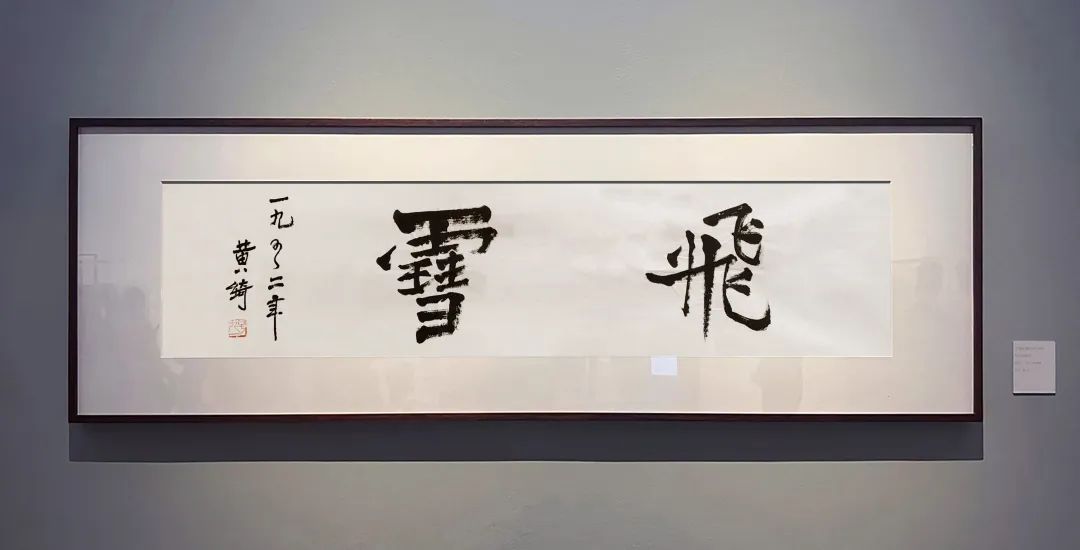 飛雪
一九二年
黄綺